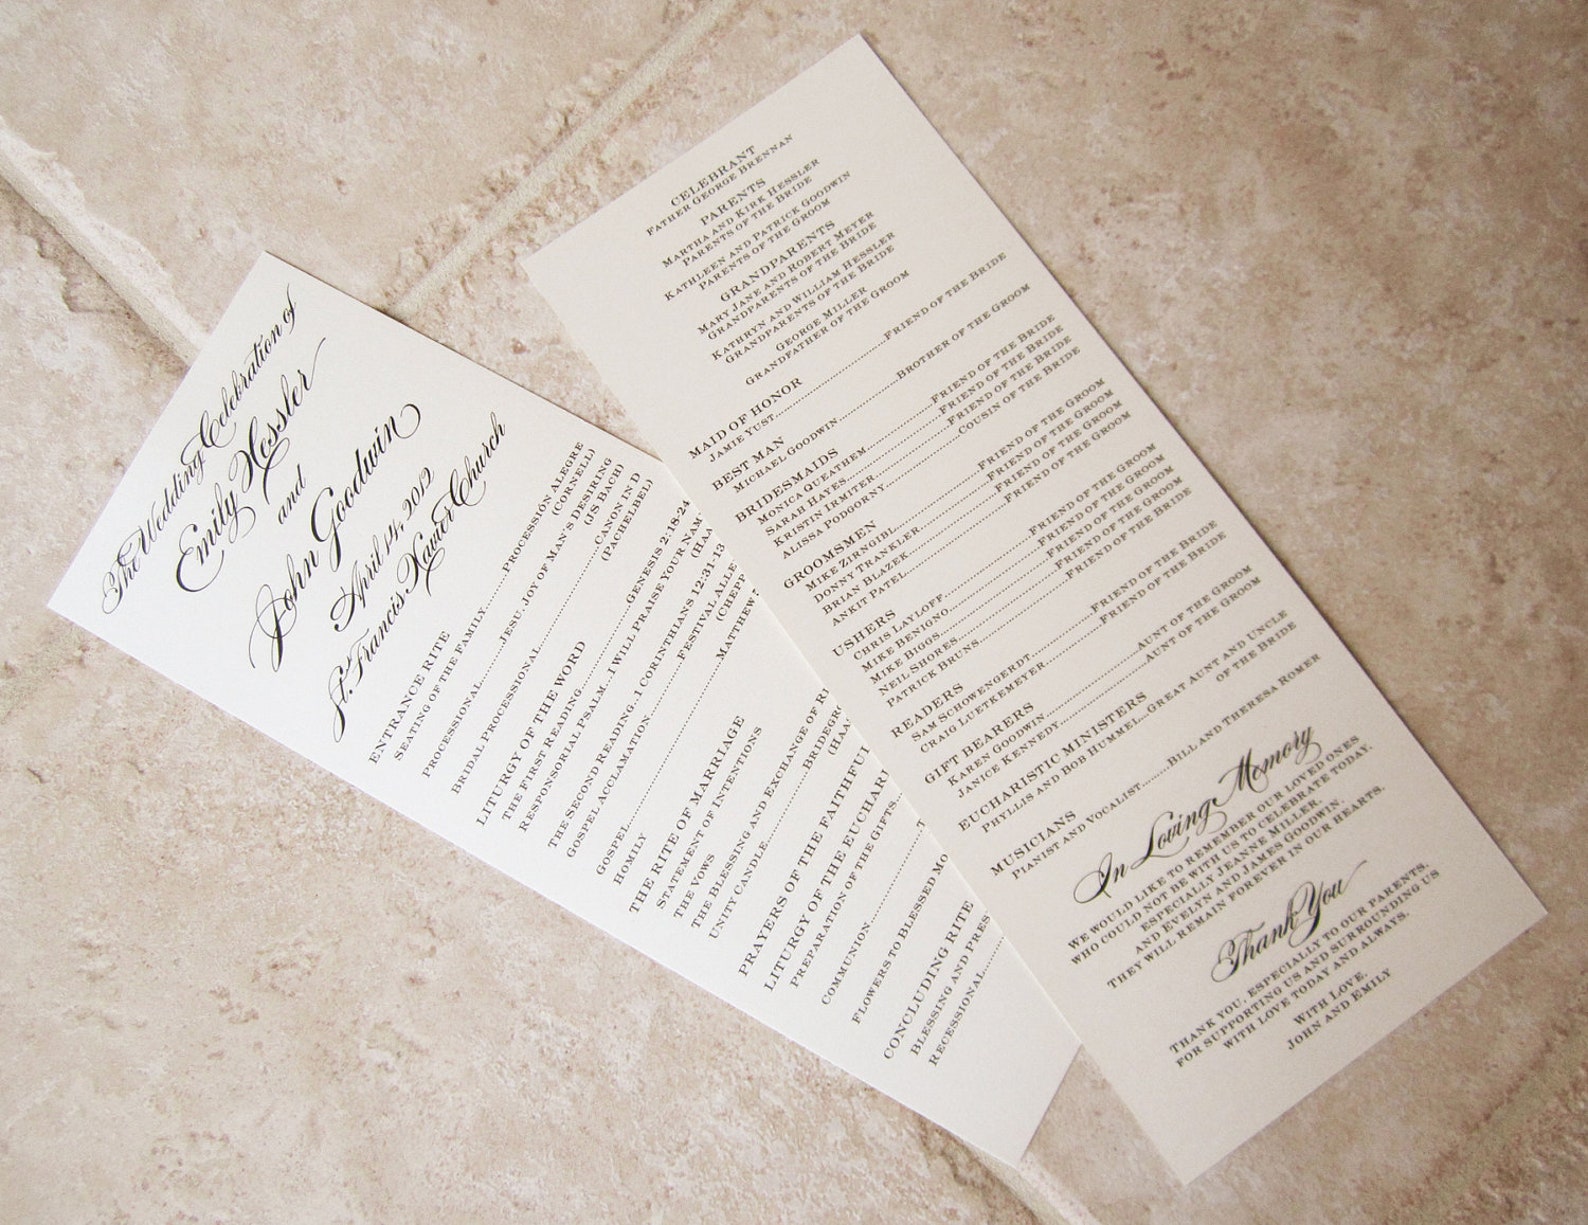 The Wedding Celebration of
Emily Hessler
and
John Goodwin
April 14, 2013
St. Francis Xavier Church
ENTRANCE RITE
SEATING OF THE FAMILY....................PROCESSIÓN ALEGRE
(CORNELL)
PROCESSIONAL..........JESU, JOY OF MAN'S DESIRING
(JS BACH)
BRIDAL PROCESSIONAL..............................CANON IN D
(PACHELBEL)
LITURGY OF THE WORD
THE FIRST READING....................GENESIS 2:18-24
RESPONSORIAL PSALM....I WILL PRAISE YOUR NAM
(HAA
THE SECOND READING..1 CORINTHIANS 12:31-13
GOSPEL ACCLAMATION...............FESTIVAL ALLE
(CHEPP
GOSPEL.............................................MATTHEW
HOMILY
THE RITE OF MARRIAGE
STATEMENT OF INTENTIONS
THE VOWS
THE BLESSING AND EXCHANGE OF
UNITY CANDLE....................BRIDEGR
(HAA
PRAYERS OF THE FAITHFUL
LITURGY OF THE EUCHAR
PREPARATION OF THE GIFTS.
COMMUNION.........................
FLOWERS TO BLESSED MO
CONCLUDING RITE
BLESSING AND PRES
RECESSIONAL..............
CELEBRANT
FATHER GEORGE BRENNAN
PARENTS
MARTHA AND KIRK HESSLER
PARENTS OF THE BRIDE
KATHLEEN AND PATRICK GOODWIN
PARENTS OF THE GROOM
GRANDPARENTS
MARY JANE AND ROBERT MEYER
GRANDPARENTS OF THE BRIDE
KATHRYN AND WILLIAM HESSLER
GRANDPARENTS OF THE BRIDE
GEORGE MILLER
GRANDFATHER OF THE GROOM
MAID OF HONOR
JAMIE YUST..............................FRIEND OF THE BRIDE
BEST MAN
MICHAEL GOODWIN...............BROTHER OF THE GROOM
BRIDESMAIDS
MONICA QUEATHEM................FRIEND OF THE BRIDE
SARAH HAYES.........................FRIEND OF THE BRIDE
KRISTIN IRMITER....................FRIEND OF THE BRIDE
ALISSA PODGORNY...................COUSIN OF THE BRIDE
GROOMSMEN
MIKE ZIRNGIBL......................FRIEND OF THE GROOM
DONNY TRANKLER.................FRIEND OF THE GROOM
BRIAN BLAZEK.......................FRIEND OF THE GROOM
ANKIT PATEL..........................FRIEND OF THE GROOM
USHERS
CHRIS LAYLOFF......................FRIEND OF THE GROOM
MIKE BENIGNO.......................FRIEND OF THE GROOM
MIKE BIGGS............................FRIEND OF THE GROOM
NEIL SHORES..........................FRIEND OF THE GROOM
PATRICK BRUNS......................FRIEND OF THE BRIDE
READERS
SAM SCHOWENGERDT...............FRIEND OF THE BRIDE
CRAIG LUETKEMEYER..............FRIEND OF THE BRIDE
GIFT BEARERS
KAREN GOODWIN....................AUNT OF THE GROOM
JANICE KENNEDY...................AUNT OF THE GROOM
EUCHARISTIC MINISTERS
PHYLLIS AND BOB HUMMEL....GREAT AUNT AND UNCLE
OF THE BRIDE
MUSICIANS
PIANIST AND VOCALIST.........BILL AND THERESA ROMER
In Loving Memory
WE WOULD LIKE TO REMEMBER OUR LOVED ONES
WHO COULD NOT BE WITH US TO CELEBRATE TODAY,
ESPECIALLY JEANNE MILLER,
AND EVELYN AND JAMES GOODWIN.
THEY WILL REMAIN FOREVER IN OUR HEARTS.
Thank You
THANK YOU, ESPECIALLY TO OUR PARENTS,
FOR SUPPORTING US AND SURROUNDING US
WITH LOVE TODAY AND ALWAYS.
WITH LOVE,
JOHN AND EMILY